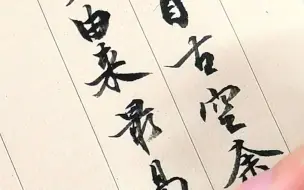 自古空余
由来最易